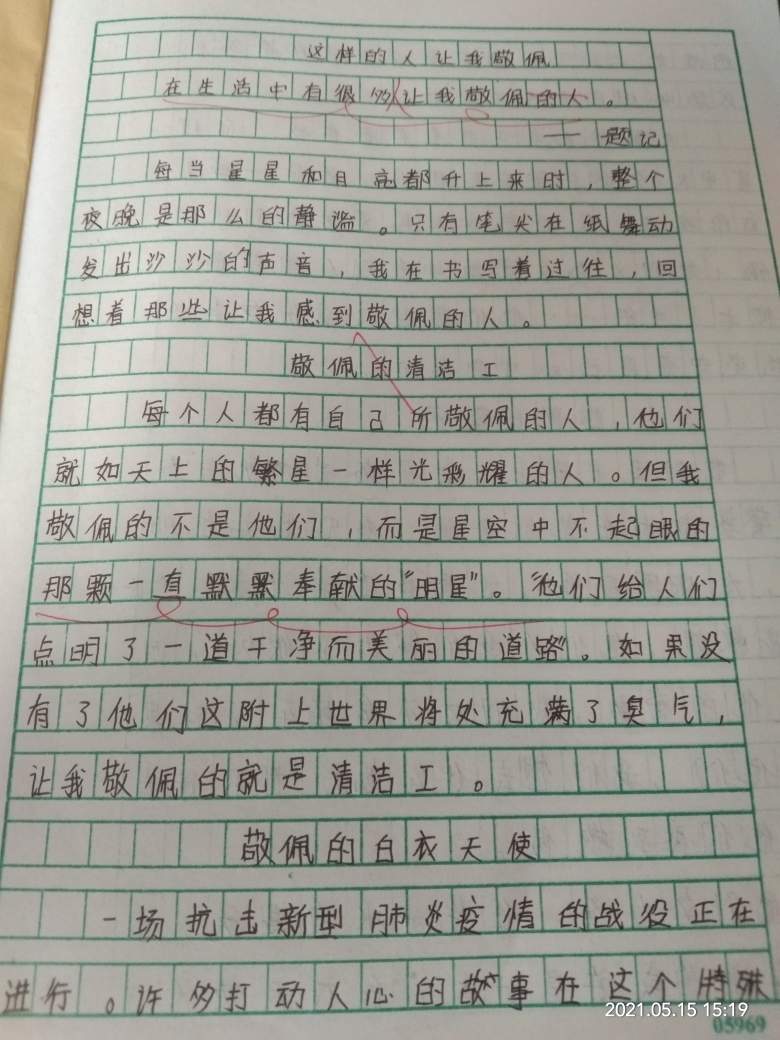 这样的人让我敬佩
在生活中有很多让我敬佩的人。
——题记
每当星星和月亮都升上来时，整个
夜晚是那么的静谧。只有笔尖在纸舞动
发出沙沙的声音，我在书写着过往，回
想着那些让我感到敬佩的人。
敬佩的清洁工
每个人都有自己所敬佩的人，他们
就如天上的繁星一样光彩耀的人。但我
敬佩的不是他们，而是星空中不起眼的
那颗一直默默奉献的“明星”。“他们给人们
点明了一道干净而美丽的道路”。如果没
有了他们这附上世界将处充满了臭气，
让我敬佩的就是清洁工。
敬佩的白衣天使
一场抗击新型肺炎疫情的战役正在
进行。许多打动人心的故事在这个特殊
2021.05.15 15:19
05969